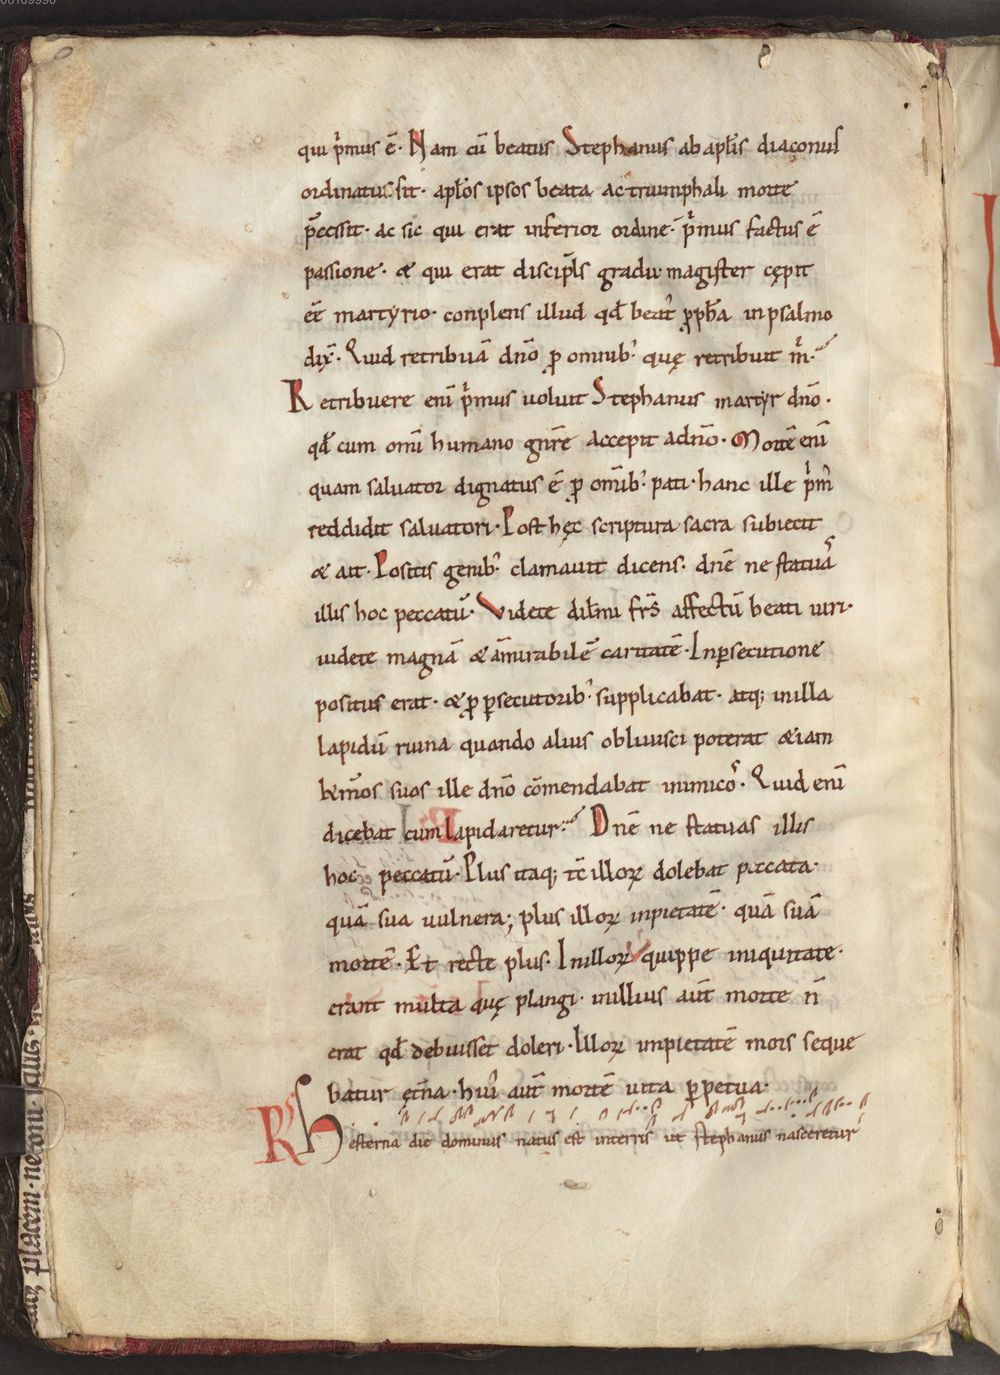 00109990
qui p̊mus ē· Nam cū beatus Stephanus ab apl̄is diaconus
ordinatus sit· apl̄os ipsos beata ac triumphali morte
p̄cessit· ac sic qui erat inferior ordine· p̊mus factus ē
passione· & qui erat discipl̄s gradu· magister cępit
eē martyrio· conplens illud qd̄ beat᾽ ꝓph̄a in psalmo
dix̄· Quid retribuā dn̄o ꝓ omnib᾽ quę retribuit m̊·
Retribuere eni̅ p̊mus uoluit Stephanus martyr dn̄o·
qd̄ cum om̄i humano gn̄re accepit adn̄o· Mortē eni̅
quam saluator dignatus ē ꝓ om̄ib᾽ pati· hanc ille p̊m̄
reddidit saluatori· Post hęc scriptura sacra subiecit
& ait· Positis genib᾽ clamauit dicens· dn̄e ne statuas
illis hoc peccatū· Videte dil̄mi fr̄s affectū beati uiri·
uidete magnā & am̄irabilē caritatē· In ꝑsecutione
positus erat· & ꝓ ꝑsecutorib᾽ supplicabat· atq; in illa
lapidū ruina quando alius obliuisci poterat &iam
kr̄mos suos ille dn̄o cōmendabat inimicos· Quid eni̅
dicebat cum lapidaretur· Dn̄e ne statuas illis
hoc peccatū· Plus itaq; tc̄ illoꝝ dolebat peccata·
quā sua uulnera; plus illoꝝ inpietatē· quā suā
mortē· Et recte plus· In illoꝝ quippe iniquitate·
erant multa quę plangi· in illius aut̄ morte n̄
erat qd̄ debuisset doleri· Illoꝝ inpietatē mors seque
batur ęt̄na· hui᾽ aut̄ mortē uita perpetua·
R̸s Hesterna die dominus natus est in terris ut stephanus nasceretur